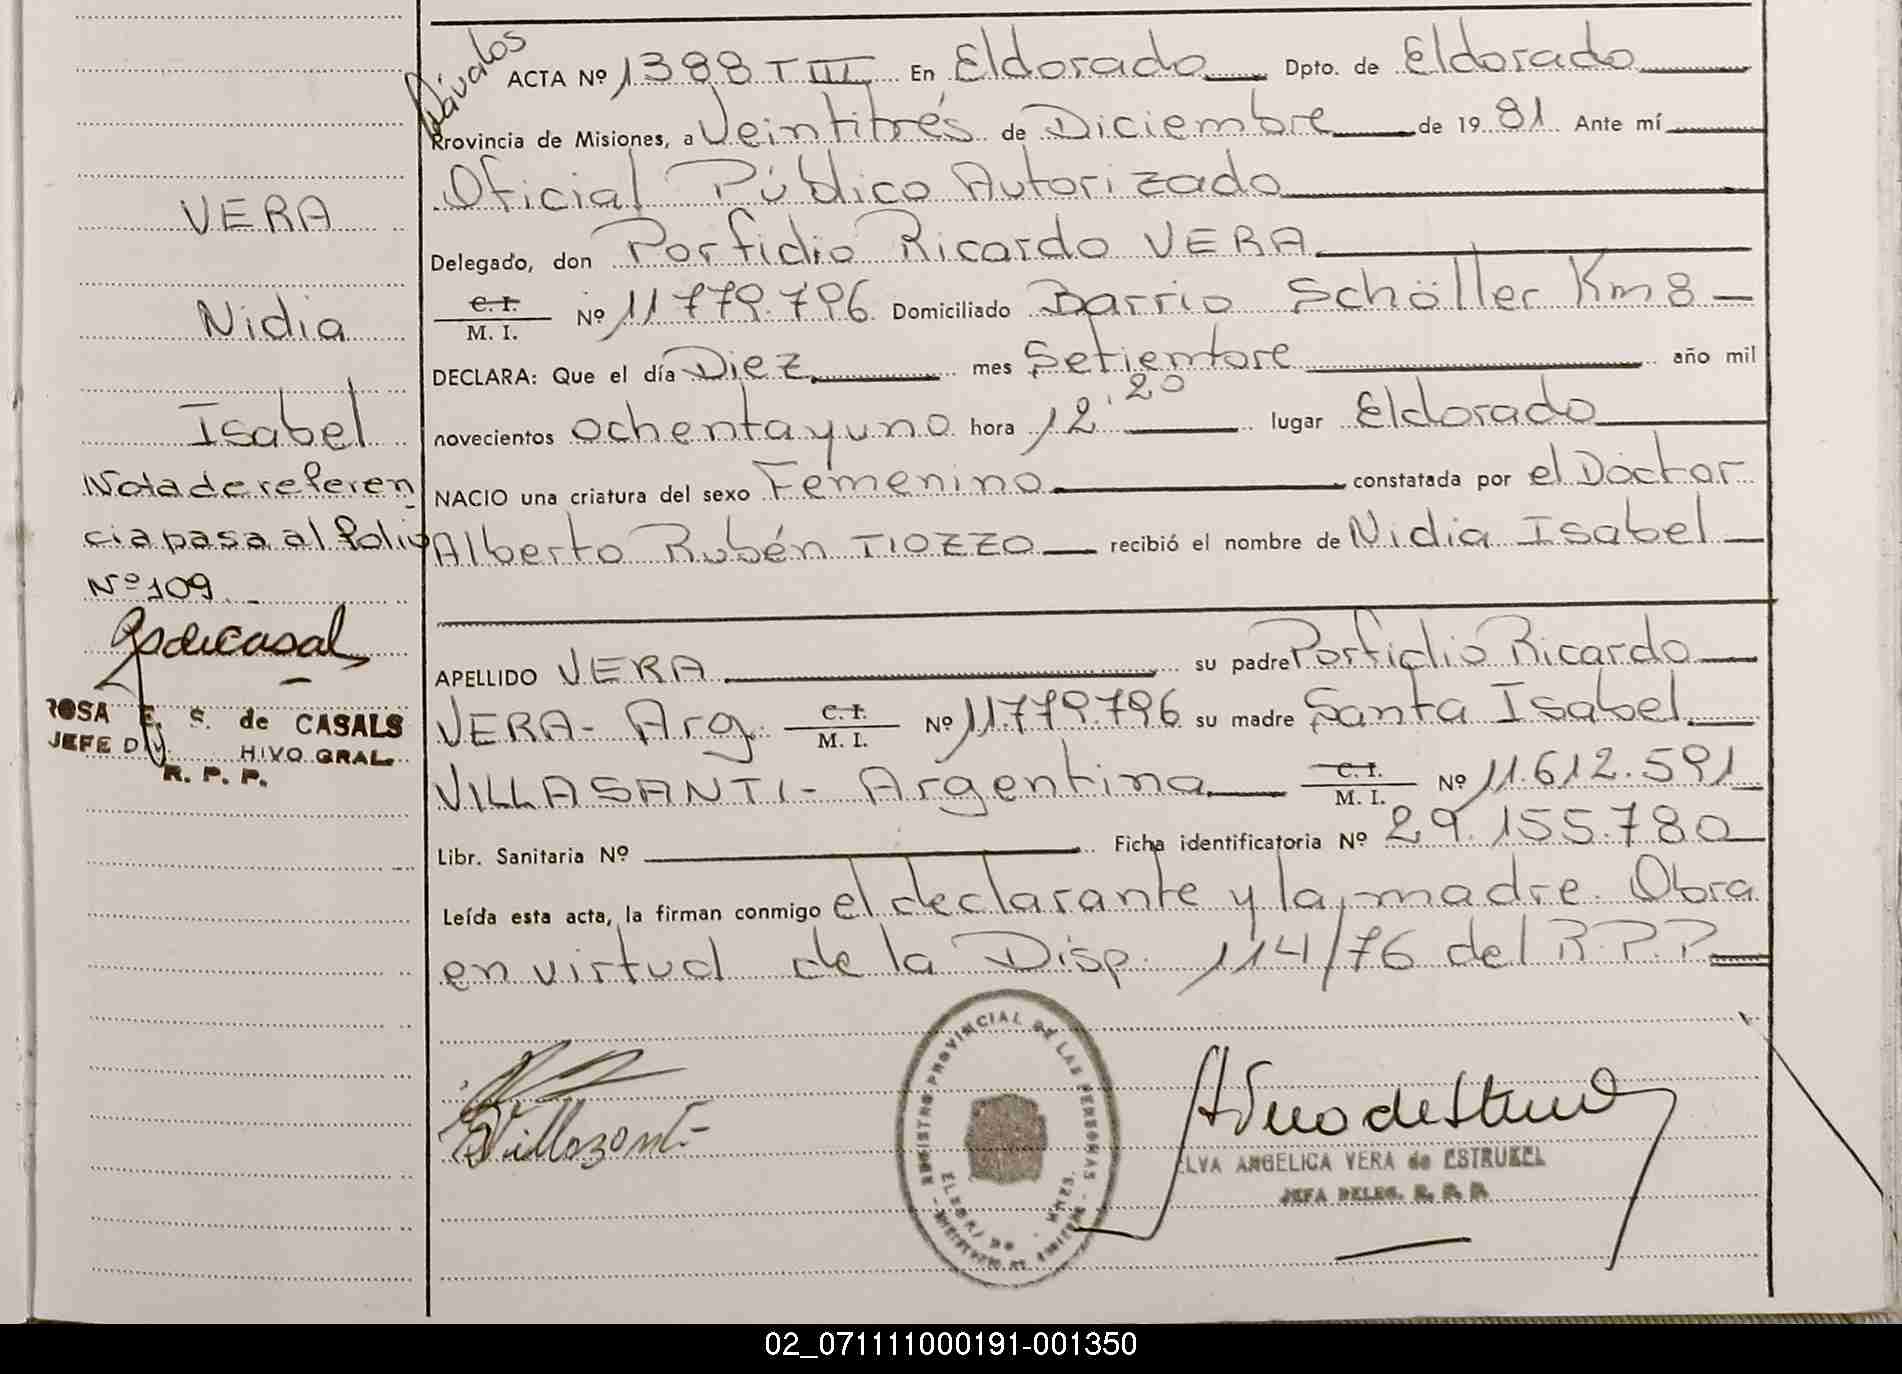 Dávalos
ACTA Nº 1388 T III En Eldorado Dpto. de Eldorado
Provincia de Misiones, a Veintitrés de Diciembre de 1981 Ante mí
Oficial Público Autorizado
Delegado, don Porfidio Ricardo VERA
C. I. / M. I. Nº 11.779.796 Domiciliado Barrio Schöller Km 8
DECLARA: Que el día Diez mes Setiembre año mil
novecientos ochenta y uno hora 12'20 lugar Eldorado
NACIO una criatura del sexo Femenino constatada por el Doctor
Alberto Rubén TIOZZO recibió el nombre de Nidia Isabel
APELLIDO VERA su padre Porfidio Ricardo
VERA- Arg. C. I. / M. I. Nº 11.779.796 su madre Santa Isabel
VILLASANTI- Argentina C. I. / M. I. Nº 11.612.591
Libr. Sanitaria Nº Ficha identificatoria Nº 29.155.780
Leída esta acta, la firman conmigo el declarante y la madre. Obra
en virtud de la Disp. 114/76 del R.P.P.
VERA
Nidia
Isabel
Nota de referen
cia pasa al folio
Nº 109
ROSA E. S. de CASALS
JEFE DIV. HIVO GRAL.
R. P. P.
REGISTRO PROVINCIAL DE LAS PERSONAS
ELDORADO - MNES.
ELVA ANGELICA VERA de ESTRUKEL
JEFA DELEG. R. P. P.
02_071111000191-001350